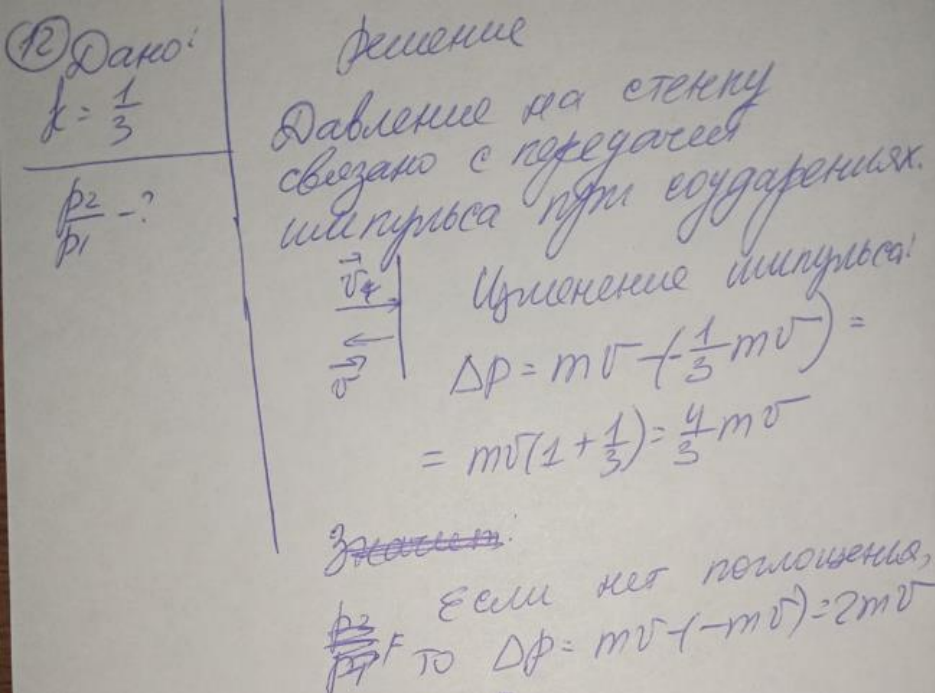 12 Дано:
k = 1/3
p2/p1 - ?
Решение
Давление на стенку
связано с передачей
импульса при соударениях.
Изменение импульса:
v
Δp = mv - (-1/3 mv) =
= mv(1 + 1/3) = 4/3 mv
Если нет поглощения,
то Δp = mv - (-mv) = 2mv